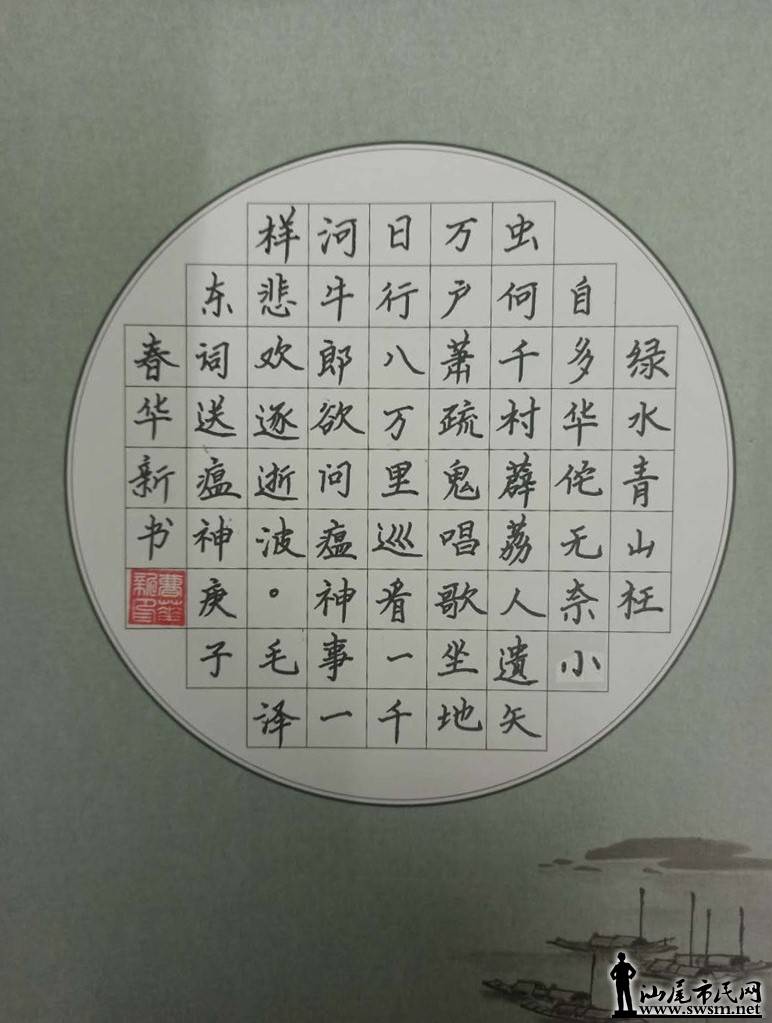 绿水青山枉
自多华佗无奈小
虫何千村薜荔人遗矢
万户萧疏鬼唱歌坐地
日行八万里巡看一千
河牛郎欲问瘟神事一
样悲欢逐逝波。毛泽
东词送瘟神庚子
春华新书
曹華新印
汕尾市民网
www.swsm.net